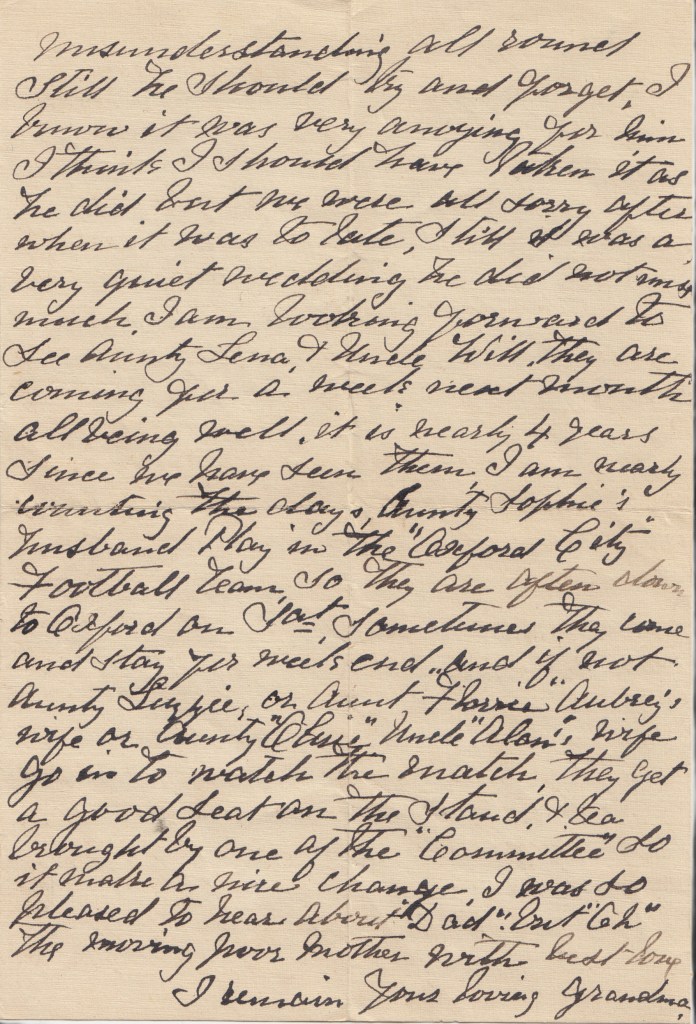 misunderstanding all round
Still he should try and forget, I
know it was very anoying for him
I think I should have taken it as
he did but we were all sorry after
when it was to late, Still it was a
very quiet wedding he did not miss
much, I am looking forward to
see Aunty Lena, & Uncle Will, they are
coming for a week next month
all being well, it is nearly 4 years
since we have seen them, I am nearly
counting the days, Aunty Sophie's
husband Play in the "Oxford City"
Football team, so they are often down
to Oxford on Sat, sometimes they come
and stay for week end, and if not
Aunty Lizzie, or Aunt "Florrie" Aubrey's
wife or Aunty "Elsie" Uncle "Alan's" wife
go in to watch the match, they get
a good seat on the Stand, & tea
brought by one of the "Committee" so
it make a nice change, I was so
pleased to hear about "Dad" but "Oh"
the moving poor mother with best love
I remain Your loving Grandma.